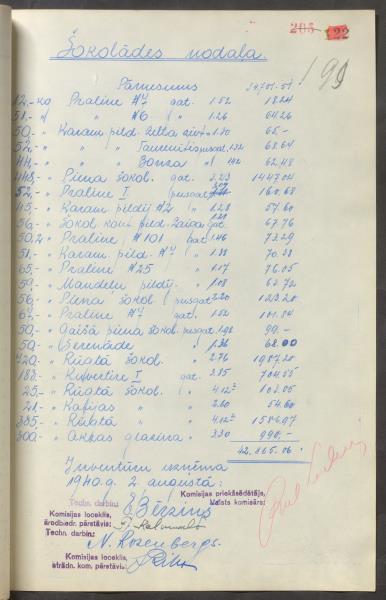 205 22
199
Šokolādes nodaļa
Pārnesums 34701.51
12,- kg Praline #7 gat. 1.52 18.24
51,- " " #6 " 1.26 64.26
50,- " Karam. pild. Zelta 1.30 65.-
52,- " " " pusgat. 1.32 68.64
44,- " " " Bonza " 1.42 62.48
Piena šokol. gat. 3.23
52,- " Praline I pusgat. 160.68
45,- " Karam. pildīj #2 " 1.28 57.60
56,- " Šokol. kon. pild. 1.21 67.76
50,2 " Praline #101 gat. 1.46 73.29
51,- " Karam. pild. #7 " 1.38 70.38
65,- " Praline #25 " 1.17 76.05
59,- " Mandeļu pildīj. " 1.08 63.72
56,- " Piena šokol. pusgat. 2.20 123.20
67,- " Praline #7 gat. 1.52 101.84
50,- " Gaišā piena šokol. pusgat. 1.98 99.-
50,- " Serenāde " 1.36 68.00
720,- " Rūgtā šokol. " 2.76 1987.20
183,- " Kuvertire I gat. 3.85 704.55
25,- " Rūgtā šokol. " 4.12 103.05
21,- " Kafijas " " 2.60 54.60
385,- " Rūgtā " " 4.12 1586.97
300,- " glazūra " 3.30 990,-
42.865.06
Inventūru izņēma
1940.g. 2. augustā:
Techn. darbin.
E Bērziņš
Komisijas priekšsēdētājs,
Valsts komisārs:
Komisijas loceklis,
arodbiedr. pārstāvis:
Techn. darbin:
N. Rozenbergs.
Komisijas loceklis,
strādn. kom. pārstāvis: